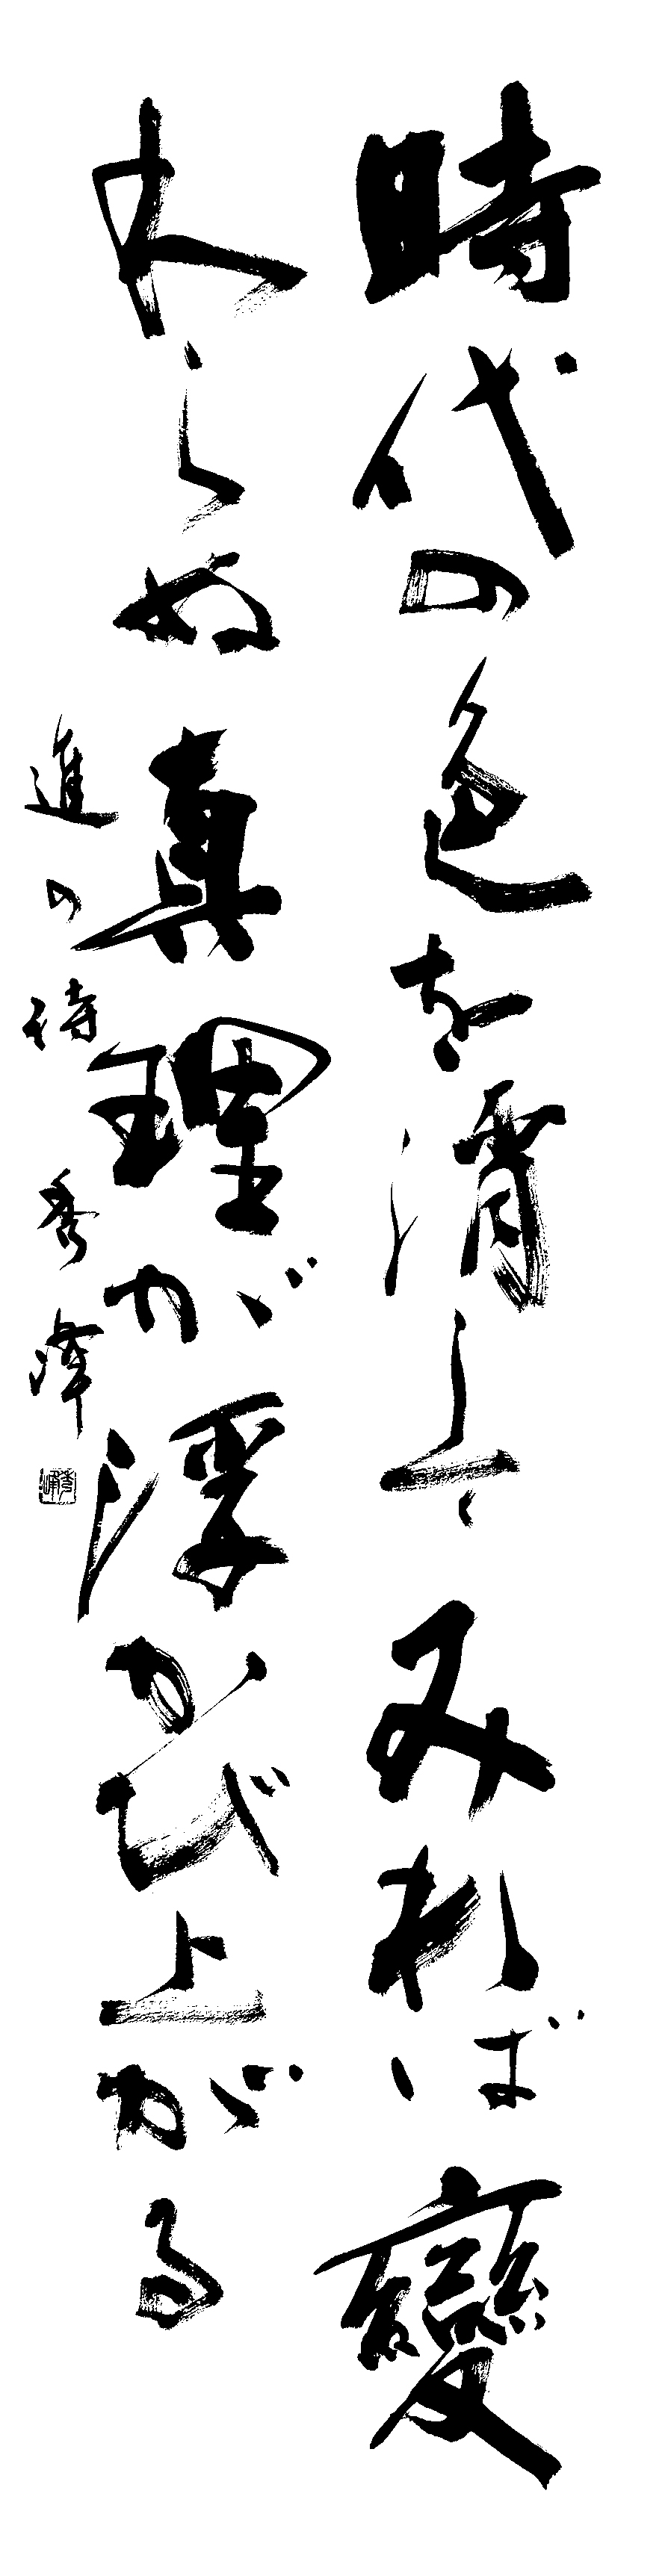 時代の色を消してみれば變
わらぬ真理が浮かび上がる
進の詩 秀